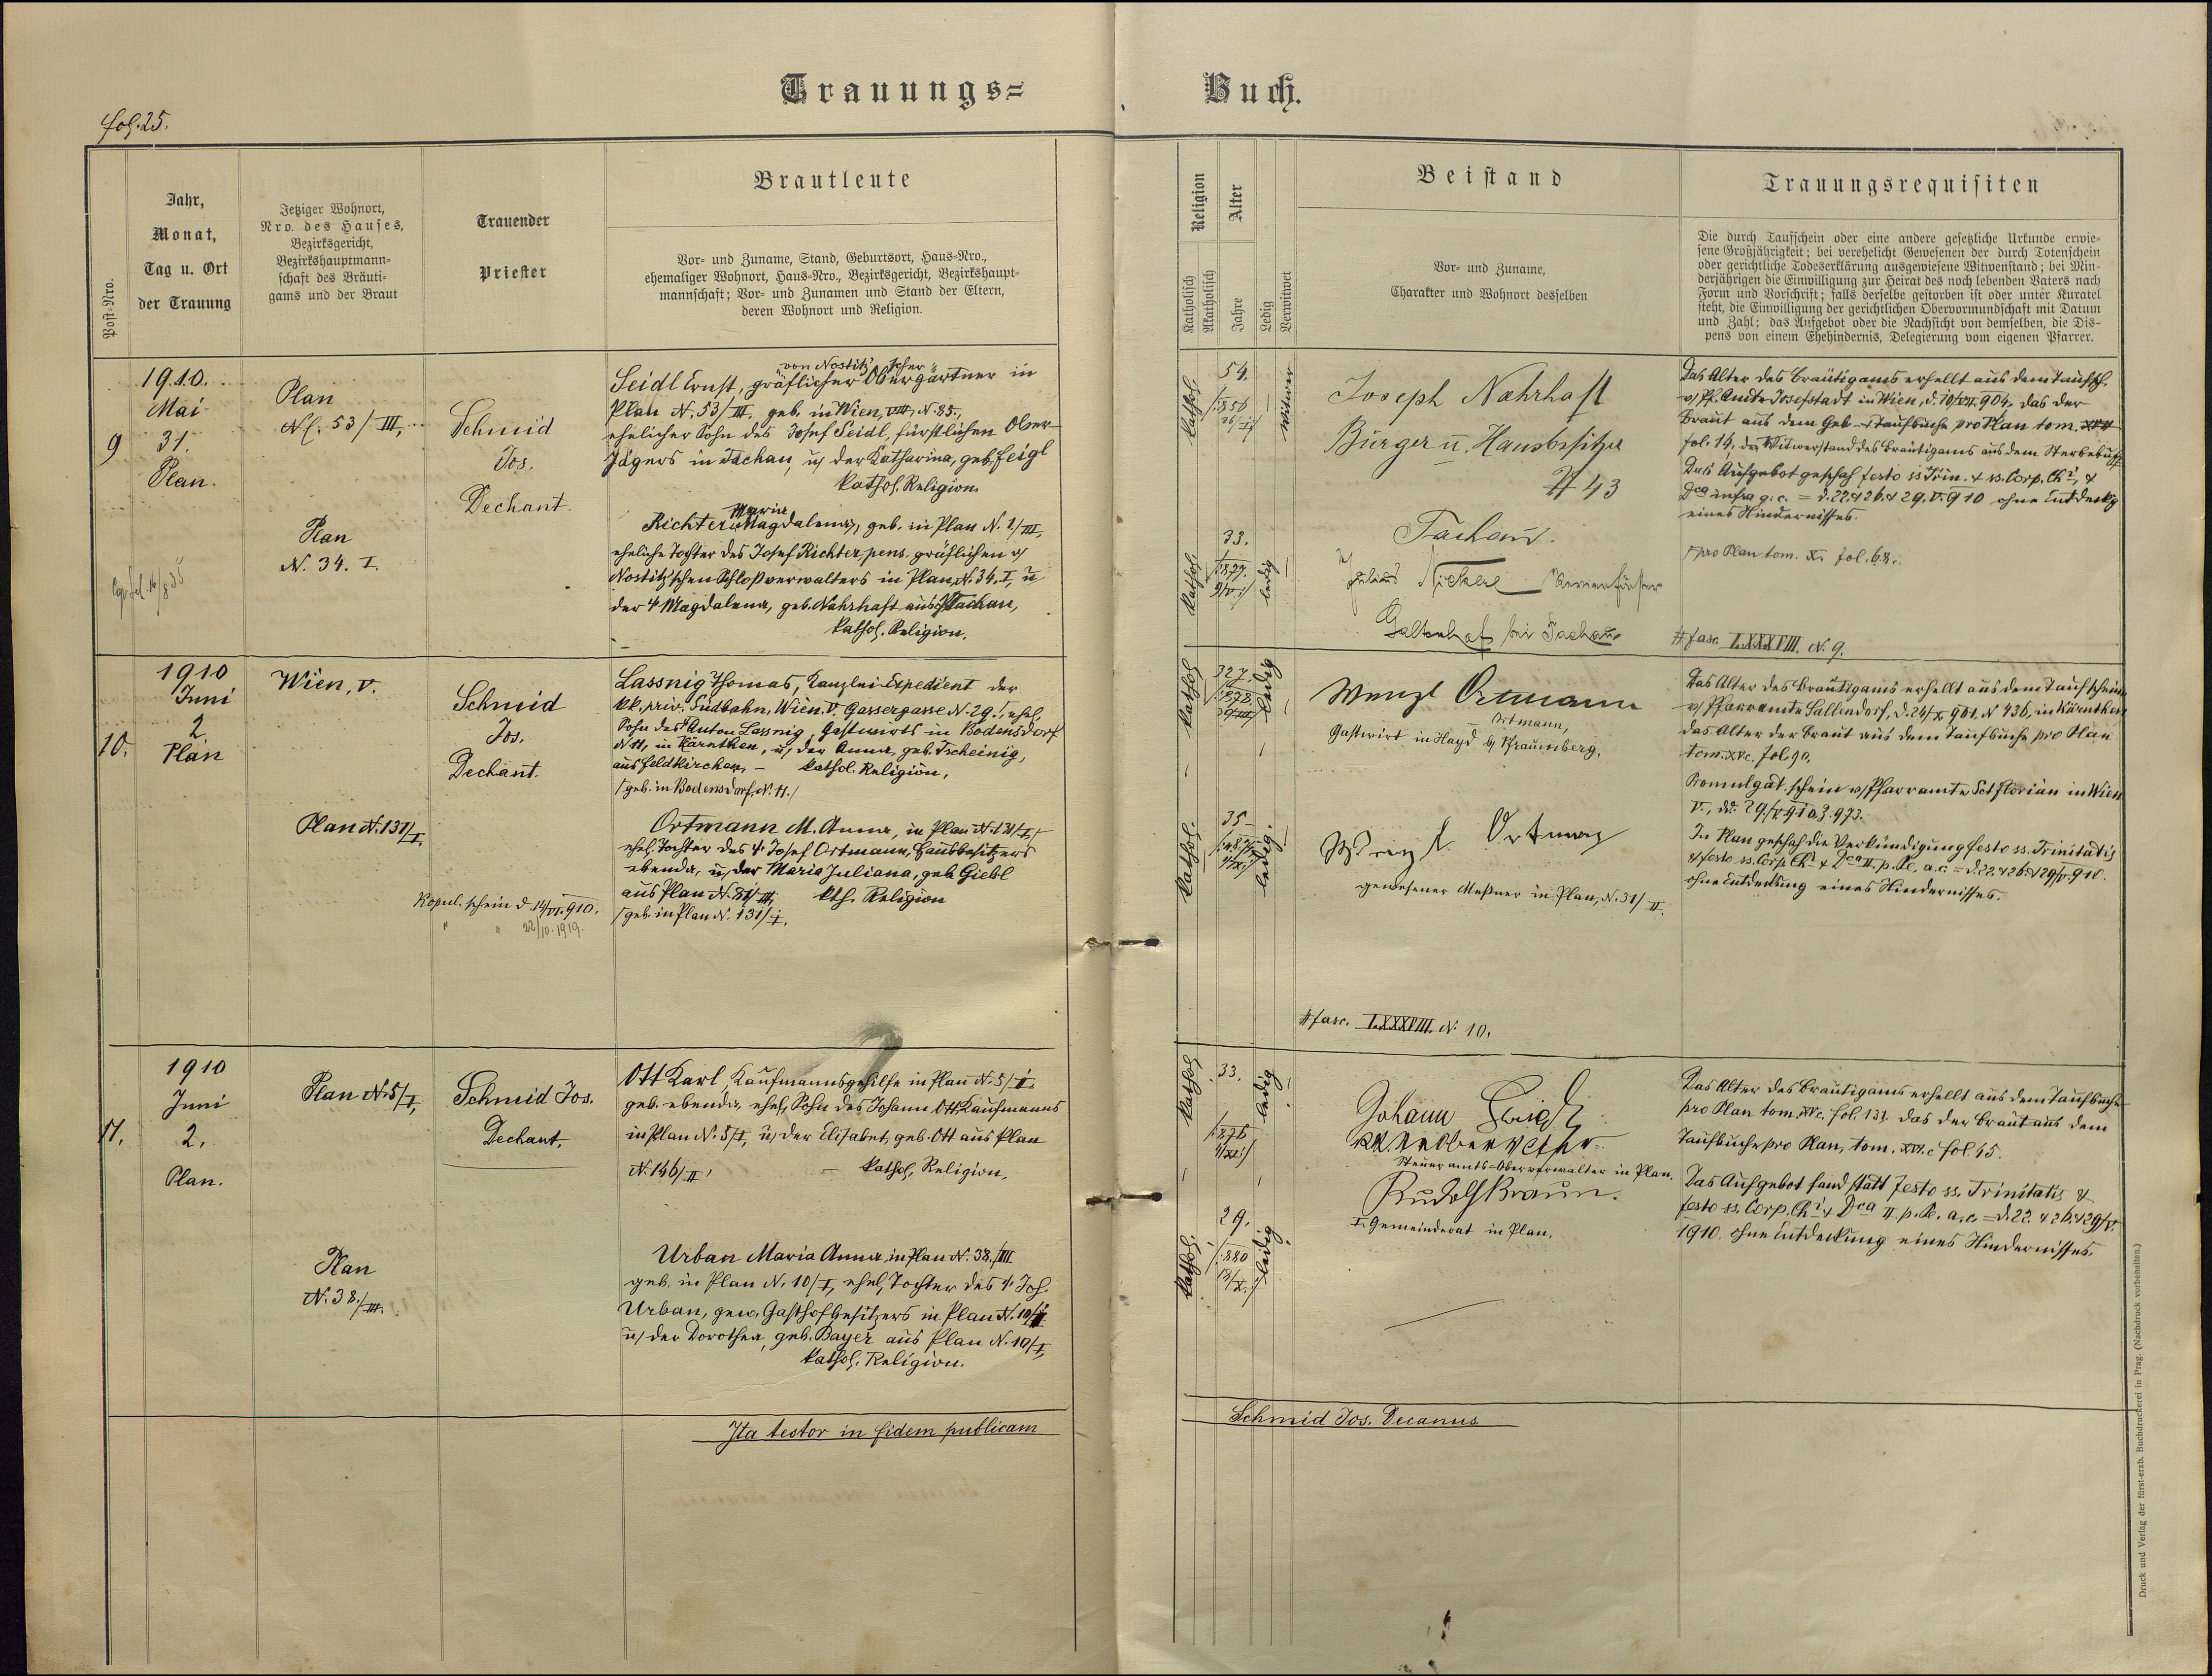 Trauungs= Buch.
fol. 25.
Post-Nro.
Jahr,
Monat,
Tag u. Ort
der Trauung
Jetziger Wohnort,
Nro. des Hauses,
Bezirksgericht,
Bezirkshauptmann-
schaft des Bräuti-
gams und der Braut
Trauender
Priester
Brautleute
Vor- und Zuname, Stand, Geburtsort, Haus-Nro.,
ehemaliger Wohnort, Haus-Nro., Bezirksgericht, Bezirkshaupt-
mannschaft; Vor- und Zunamen und Stand der Eltern,
deren Wohnort und Religion.
Religion
Katholisch
Akatholisch
Alter
Jahre
Ledig
Verwitwet
Beistand
Vor- und Zuname,
Charakter und Wohnort desselben
Trauungsrequisiten
Die durch Taufschein oder eine andere gesetzliche Urkunde erwie-
sene Großjährigkeit; bei verehelicht Gewesenen der durch Totenschein
oder gerichtliche Todeserklärung ausgewiesene Witwenstand; bei Min-
derjährigen die Einwilligung zur Heirat des noch lebenden Vaters nach
Form und Vorschrift; falls derselbe gestorben ist oder unter Kuratel
steht, die Einwilligung der gerichtlichen Obervormundschaft mit Datum
und Zahl; das Aufgebot oder die Nachsicht von demselben, die Dis-
pens von einem Ehehindernis, Delegierung vom eigenen Pfarrer.
9
1910.
Mai
31.
Plan.
Plan
N. 53/III,
Plan
N. 34. I.
Schmid
Jos.
Dechant.
von Nostitz'scher
Seidl Ernst, gräflicher Obergärtner in
Plan N. 53/III, geb. in Wien, VIII, N. 85.,
ehelicher Sohn des Josef Seidl, fürstlichen Ober-
Jägers in Tachau, u/ der Katharina, geb. Feigl
kathol. Religion.
Maria
Richter Magdalena, geb. in Plan N. 1/III,
eheliche Tochter des Josef Richter, pens. gräflichen v/
Nostitz'schen Schloßverwalters in Plan, N. 34. I, u
der † Magdalena, geb. Nahrhaft aus Tachau,
kathol. Religion.
kathol.
54.
1856
Witwer
kathol.
33.
1877.
ledig
Joseph Nahrhaft
Bürger u. Hausbesitzer
# 43
Tachau.
Julius Revierförster
Galtenhof bei Tachau
Das Alter des Bräutigams erhellt aus dem Taufsch.
v/ Pf. Amte Josefstadt in Wien, d. 19/VII. 904, das der
Braut aus dem Geb. Taufbuche pro Plan tom.
fol. 14, der Witwerstand des Bräutigams aus dem Sterbebuche
Das Aufgebot geschah festo ss Trin. & ss. Corp. Chi, &
Dca infra g. c. = d. 22. & 26. & 29. V. 910 ohne Entdeckg
eines Hindernisses.
pro Plan tom. X. fol. 68.
# fasc. LXXXVIII. N. 9.
10.
1910
Juni
2.
Plan
Wien, V.
Plan N. 131/I.
Schmid
Jos.
Dechant.
Lassnig Thomas, Kanzlei-Expedient der
kk. priv. Südbahn, Wien. V. Gassergasse N. 29 I, ehel.
Sohn des Anton Lassnig, Gastwirts in Bodensdorf
N 11, in Kärnthen, u/ der Anna, geb. Tscheinig,
aus Feldkirchen, – kathol. Religion,
/geb. in Bodensdorf, N. 11./
Ortmann M. Anna, in Plan N. 131/I,
ehel. Tochter des † Josef Ortmann, Hausbesitzers
ebenda, u/ der Maria Juliana, geb. Giebl
aus Plan kth. Religion
/geb. in Plan N. 131/I.
Kopul. schein d. 14/VI. 910.
" " 22/10. 1919.
kathol.
32
1878.
ledig
kathol.
35
ledig.
Wenzl Ortmann
Ortmann,
Gastwirt in Hayd b/ Pfraumberg.
Wenzl. Ortmann
gewesener Meßner in Plan, N. 31/II.
# fasc. LXXXVIII. N. 10.
Das Alter des Bräutigams erhellt aus dem Taufschein
v/ Pfarramte Sallendorf, d. 24/X. 901, N 436, in Kärnthen
das Alter der Braut aus dem Taufbuche pro Plan
tom. XVc. fol. 90,
Promulgat. schein v/ Pfarramte Sct Florian in Wien
V., dd. 29/V. 910 Z. 973.
In Plan geschah die Verkündigung festo ss. Trinitatis
& festo ss. Corp. Chi & Dca II. p. Pe. a. c. = d. 22. & 26. & 29/V. 910.
ohne Entdeckung eines Hindernisses.
11.
1910
Juni
2.
Plan.
Plan N. 5/I,
Plan
N. 38./III.
Schmid Jos.
Dechant.
Ott Karl, Kaufmannsgehilfe in Plan N. 5/I.
geb. ebenda, ehel. Sohn des Johann Ott Kaufmanns
in Plan N. 5/I, u/ der Elisabet, geb. Ott aus Plan
N. 146/II, – kathol. Religion.
Urban Maria Anna, in Plan N. 38./III
geb. in Plan N. 10/I, ehel. Tochter des † Joh.
Urban, gew. Gasthofbesitzers in Plan N. 10/I
u/ der Dorothea, geb. Bayer aus Plan N. 10/I,
kathol. Religion.
kathol.
33.
1876
ledig
kathol.
29.
1880
ledig
Johann
Steueramts-Oberverwalter in Plan.
Rudolf Braun.
I. Gemeinderat in Plan.
Das Alter des Bräutigams erhellt aus dem Taufbuche
pro Plan tom. XVc. fol. 131, das der Braut aus dem
Taufbuche pro Plan, tom. XVI. c fol. 45.
Das Aufgebot fand statt festo ss. Trinitatis &
festo ss. Corp. Chi & Dca II. p. Pe. a. c. = d. 22. & 26. & 29/V.
1910. ohne Entdeckung eines Hindernisses.
Ita testor in fidem publicam
Schmid Jos. Decanus
Druck und Verlag der fürst-erzb. Buchdruckerei in Prag. (Nachdruck vorbehalten.)